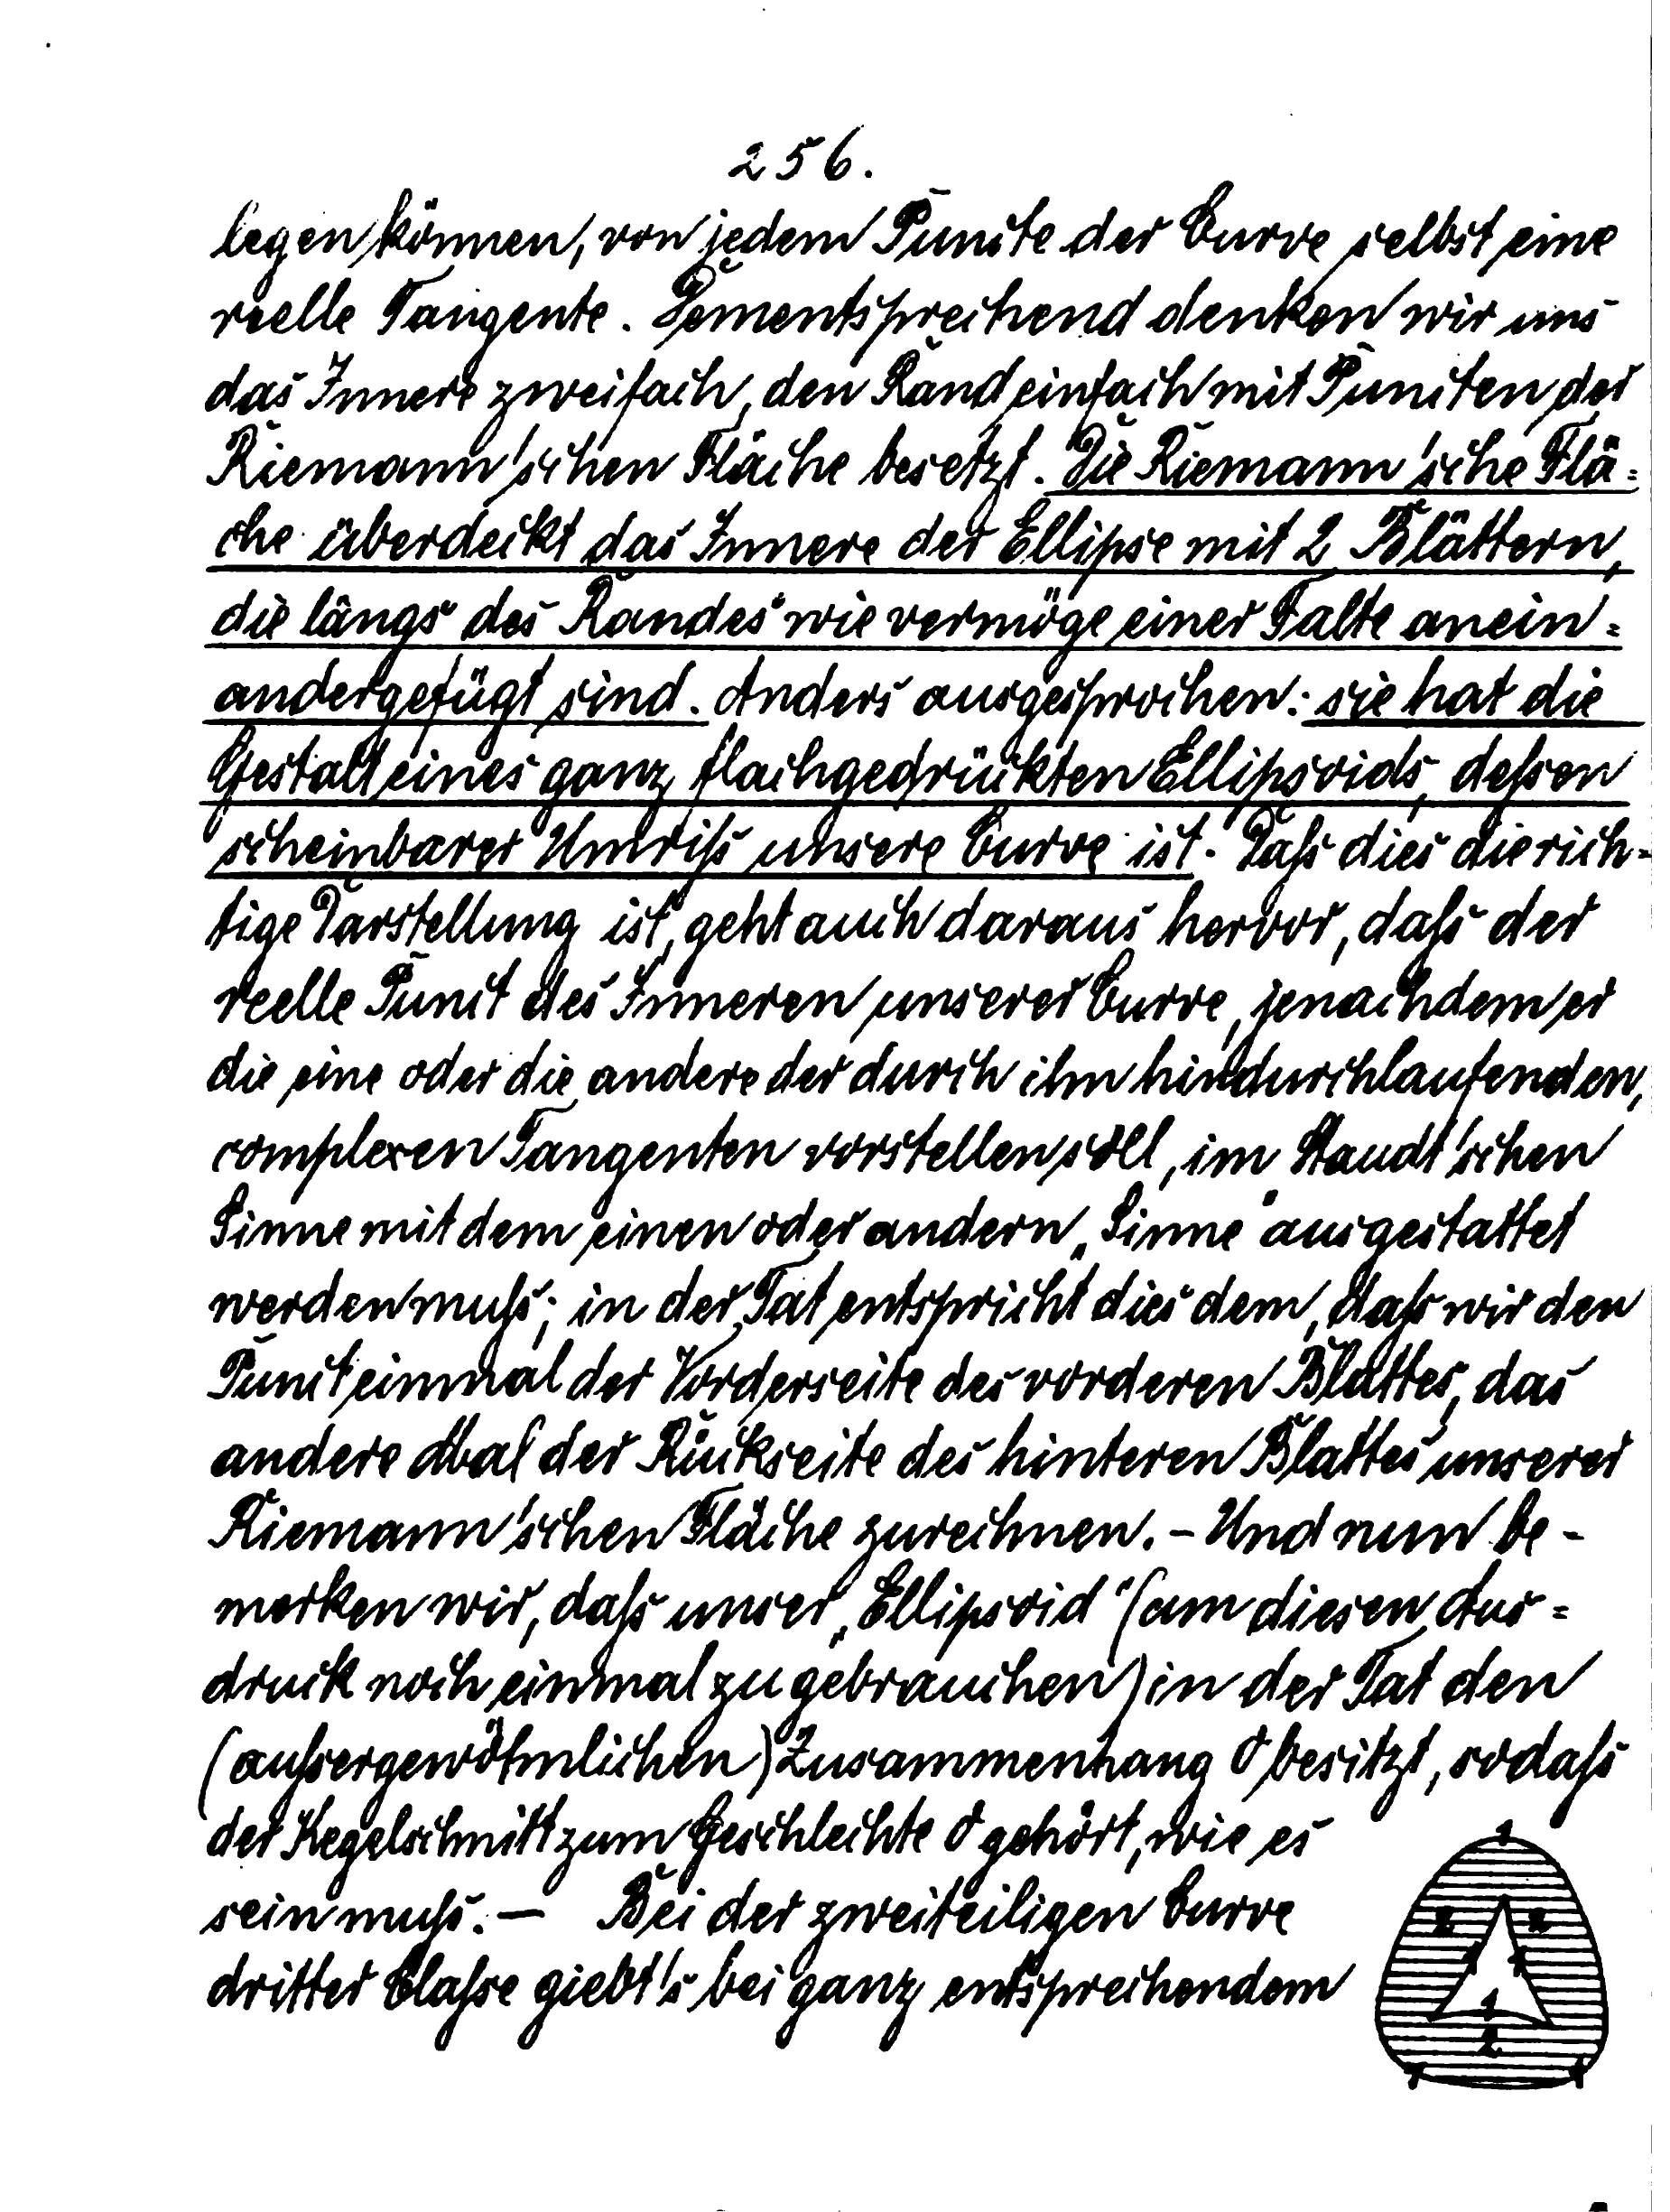 256.
legen können, von jedem Puncte der Curve selbst eine
reelle Tangente. Dementsprechend denken wir uns
das Innere zweifach, den Rand einfach mit Puncten der
Riemann'schen Fläche besetzt. Die Riemann'sche Flä=
che überdeckt das Innere der Ellipse mit 2 Blättern,
die längs des Randes wie vermöge einer Falte anein=
andergefügt sind. Anders ausgesprochen: sie hat die
Gestalt eines ganz flachgedrückten Ellipsoids, deßen
scheinbarer Umriß unsere Curve ist. Daß dies die rich-
tige Darstellung ist, geht auch daraus hervor, daß der
reelle Punct des Inneren unserer Curve, jenachdem er
die eine oder die andere der durch ihn hindurchlaufenden,
complexen Tangenten vorstellen soll, im Staudt'schen
Sinne mit dem einen oder andern „Sinne“ ausgestattet
werden muß; in der Tat entspricht dies dem, daß wir den
Punct einmal der Vorderseite des vorderen Blattes, das
andere Mal der Rückseite des hinteren Blattes unserer
Riemann'schen Fläche zurechnen. – Und nun be-
merken wir, daß unser „Ellipsoid“ (um diesen Aus=
druck noch einmal zu gebrauchen) in der Tat den
(außergewöhnlichen) Zusammenhang 0 besitzt, sodaß
der Kegelschnitt zum Geschlechte 0 gehört, wie es
sein muß. – Bei der zweiteiligen Curve
dritter Claße giebt's bei ganz entsprechendem
1
2 2
1 1
1
2
1 1